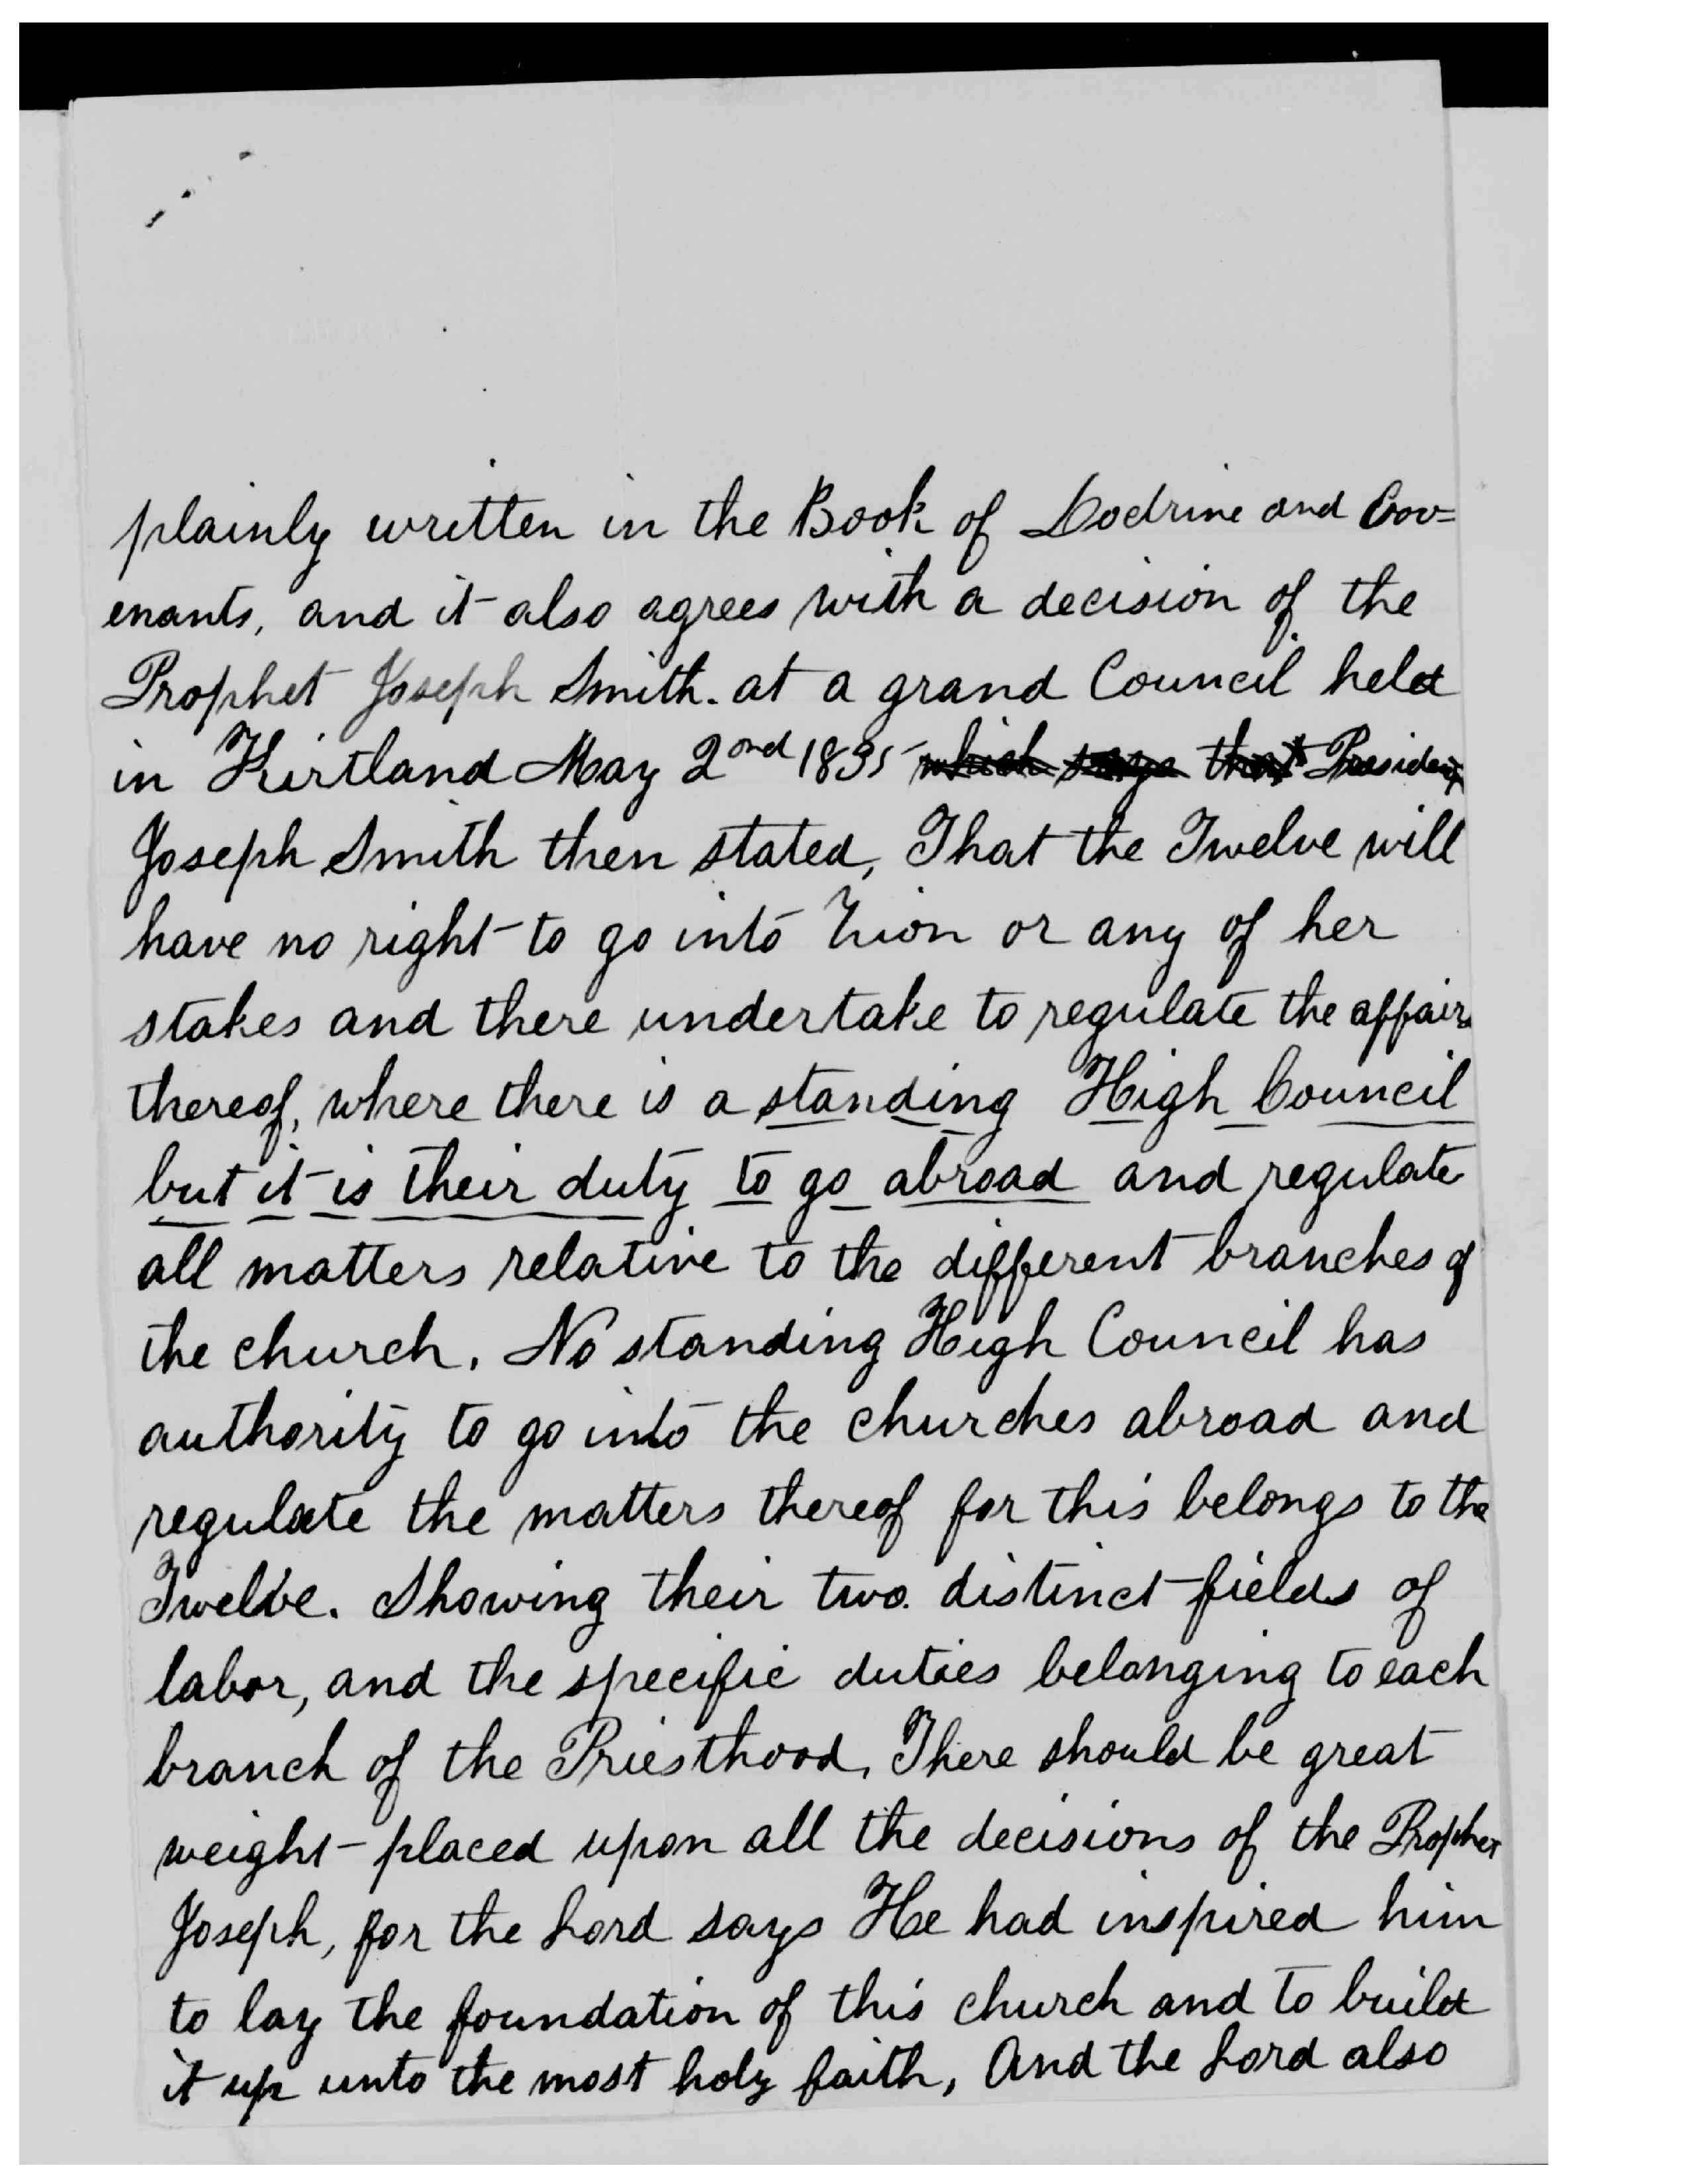 plainly written in the Book of Doctrine and Cov=
enants, and it also agrees with a decision of the
Prophet Joseph Smith. at a grand Council held
in Kirtland May 2ond 1835 which says that President
Joseph Smith then stated, That the Twelve will
have no right to go into Zion or any of her
stakes and there undertake to regulate the affairs
thereof, where there is a standing High Council
but it is their duty to go abroad and regulate
all matters relative to the different branches of
the church. No standing High Council has
authority to go into the churches abroad and
regulate the matters thereof for this belongs to the
Twelve. Showing their two distinct fields of
labor, and the specific duties belonging to each
branch of the Priesthood, There should be great
weight placed upon all the decisions of the Prophet
Joseph, for the Lord says He had inspired him
to lay the foundation of this church and to build
it up unto the most holy faith, And the Lord also